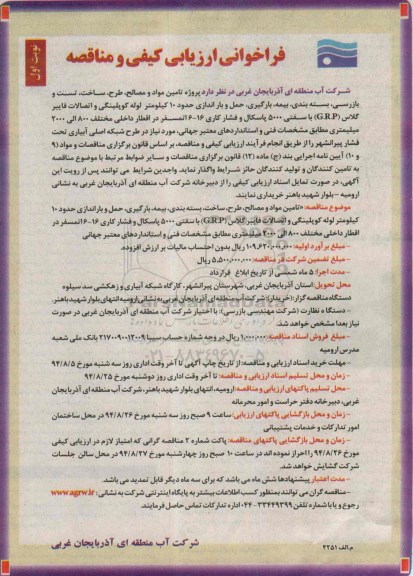 نوبت اول
فراخوانی ارزیابی کیفی و مناقصه
شرکت آب منطقه ای آذربایجان غربی در نظر دارد پروژه تامین مواد و مصالح، طرح، ساخت، تست و
بازرسی، بسته بندی، بیمه، بارگیری، حمل و بار اندازی حدود ۱۰ کیلومتر لوله کوپلینگی و اتصالات فایبر
گلاس (G.R.P) با سفتی ۵۰۰۰ پاسکال و فشار کاری ۱۶-۱۶ اتمسفر در اقطار داخلی مختلف ۸۰۰ الی ۲۰۰۰
میلیمتری مطابق مشخصات فنی و استانداردهای معتبر جهانی، مورد نیاز در طرح شبکه اصلی آبیاری تحت
فشار پیرانشهر را از طریق انجام فرآیند ارزیابی کیفی و مناقصه، بر اساس قانون برگزاری مناقصات و مواد (۹
و ۱۰) آیین نامه اجرایی بند (ج) ماده (۱۲) قانون برگزاری مناقصات و سایر ضوابط مرتبط با موضوع مناقصه
به تامین کنندگان و تولید کنندگان حائز شرایط واگذار نماید. واجدین شرایط می توانند پس از رویت این
آگهی، در صورت تمایل اسناد ارزیابی کیفی را از دبیرخانه شرکت آب منطقه ای آذربایجان غربی به نشانی
ارومیه - بلوار شهید باهنر خریداری نمایند.
موضوع مناقصه: «تامین مواد و مصالح، طرح، ساخت، بسته بندی، بیمه، بارگیری، حمل و باراندازی حدود ۱۰
کیلومتر لوله کوپلینگی و اتصالات فایبر گلاس (G.R.P) با سفتی ۵۰۰۰ پاسکال و فشار کاری ۱۶-۱۶ اتمسفر در
اقطار داخلی مختلف ۸۰۰ الی ۲۰۰۰ میلیمتری مطابق مشخصات فنی و استانداردهای معتبر جهانی
- مبلغ برآورد اولیه: ۱۰۹،۶۲۰،۰۰۰،۰۰۰ ریال بدون احتساب مالیات بر ارزش افزوده.
- مبلغ تضمین شرکت در مناقصه: ۵،۵۰۰،۰۰۰،۰۰۰ ریال
- مدت اجرا: ۵ ماه شمسی از تاریخ ابلاغ قرارداد
محل تحویل: استان آذربایجان غربی، شهرستان پیرانشهر، کارگاه شبکه آبیاری و زهکشی سد سیلوه
دستگاه مناقصه گزار: (خریدار): شرکت آب منطقه ای آذربایجان غربی به نشانی: ارومیه انتهای بلوار شهید باهنر.
- دستگاه نظارت (شرکت مهندسی بازرسی): با اختیار شرکت آب منطقه ای آذربایجان غربی در صورت
نیاز بعدا مشخص خواهد شد.
- مبلغ فروش اسناد مناقصه: ۱،۰۰۰،۰۰۰ ریال در وجه شماره حساب سیبا ۲۱۷۰۰۹۰۱۲۰۰۹ بانک ملی شعبه
مدرس ارومیه
- مهلت خرید اسناد ارزیابی و مناقصه: از تاریخ چاپ آگهی تا آخر وقت اداری روز سه شنبه مورخ ۹۴/۸/۵
- زمان و محل تسلیم اسناد ارزیابی و مناقصه: تا آخر وقت اداری روز دوشنبه مورخ ۹۴/۸/۲۵
- محل تسلیم پاکتهای ارزیابی و مناقصه: ارومیه، انتهای بلوار شهید باهنر، شرکت آب منطقه ای آذربایجان
غربی، دبیرخانه دفتر حراست و امور محرمانه
- زمان و محل بازگشایی پاکتهای ارزیابی: ساعت ۹ صبح روز سه شنبه مورخ ۹۴/۸/۲۶ در محل ساختمان
امور تدارکات و خدمات پشتیبانی
- زمان و محل بازگشایی پاکتهای مناقصه: پاکت شماره ۲ مناقصه گرانی که امتیاز لازم در ارزیابی کیفی
مورخ ۹۴/۸/۲۶ را احراز نموده اند در ساعت ۱۰ صبح روز چهارشنبه مورخ ۹۴/۸/۲۷ در محل سالن جلسات
شرکت گشایش خواهد شد.
- مدت اعتبار پیشنهادها شش ماه می باشد که برای سه ماه دیگر قابل تمدید می باشد.
- مناقصه گران می توانند بمنظور کسب اطلاعات بیشتر به پایگاه اینترنتی شرکت به نشانی: www.agrw.ir
رجوع و یا با شماره تلفن ۳۳۴۴۹۳۹۹-۰۴۴ اداره تدارکات تماس حاصل فرمایند.
شرکت آب منطقه ای آذربایجان غربی
م الف ۲۲۵۱